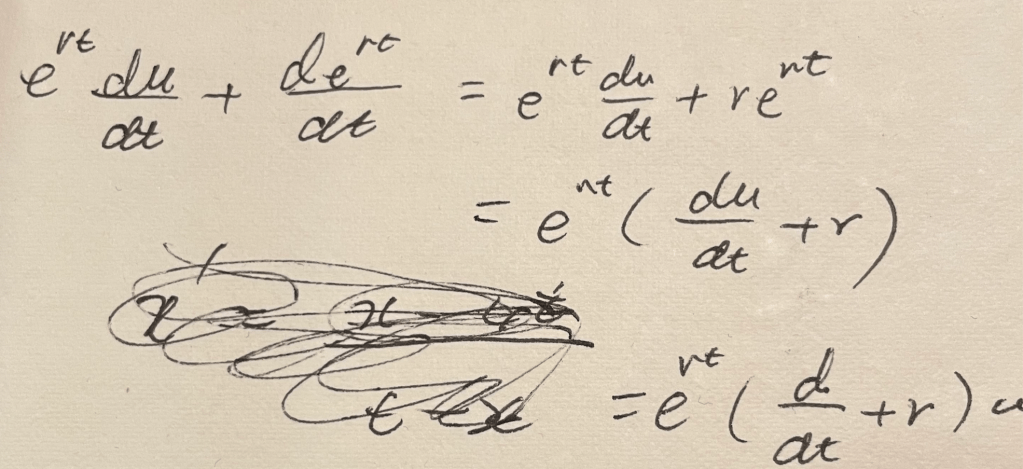 e^{rt} \frac{du}{dt} + \frac{de^{rt}}{dt} = e^{rt} \frac{du}{dt} + re^{rt}
= e^{rt} ( \frac{du}{dt} + r )
= e^{rt} ( \frac{d}{dt} + r ) u